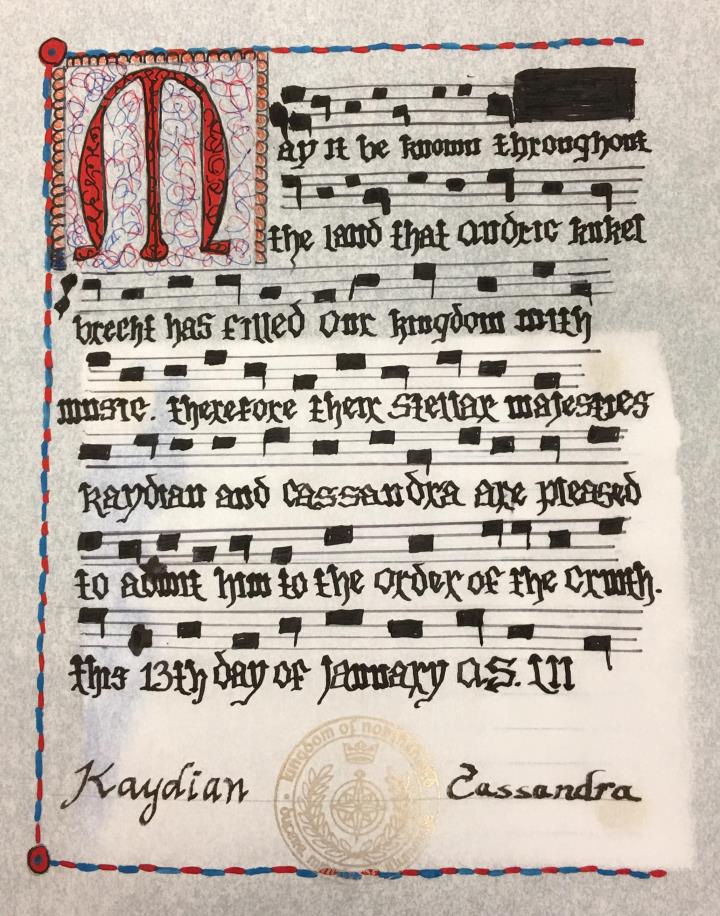 May it be known throughout
the land that Audric Kukel
brecht has filled our kingdom with
music. therefore their stellar majesties
Kaydian and Cassandra are pleased
to admit him to the order of the Crwth.
this 13th day of January A.S. LII
Kaydian
Cassandra
kingdom of